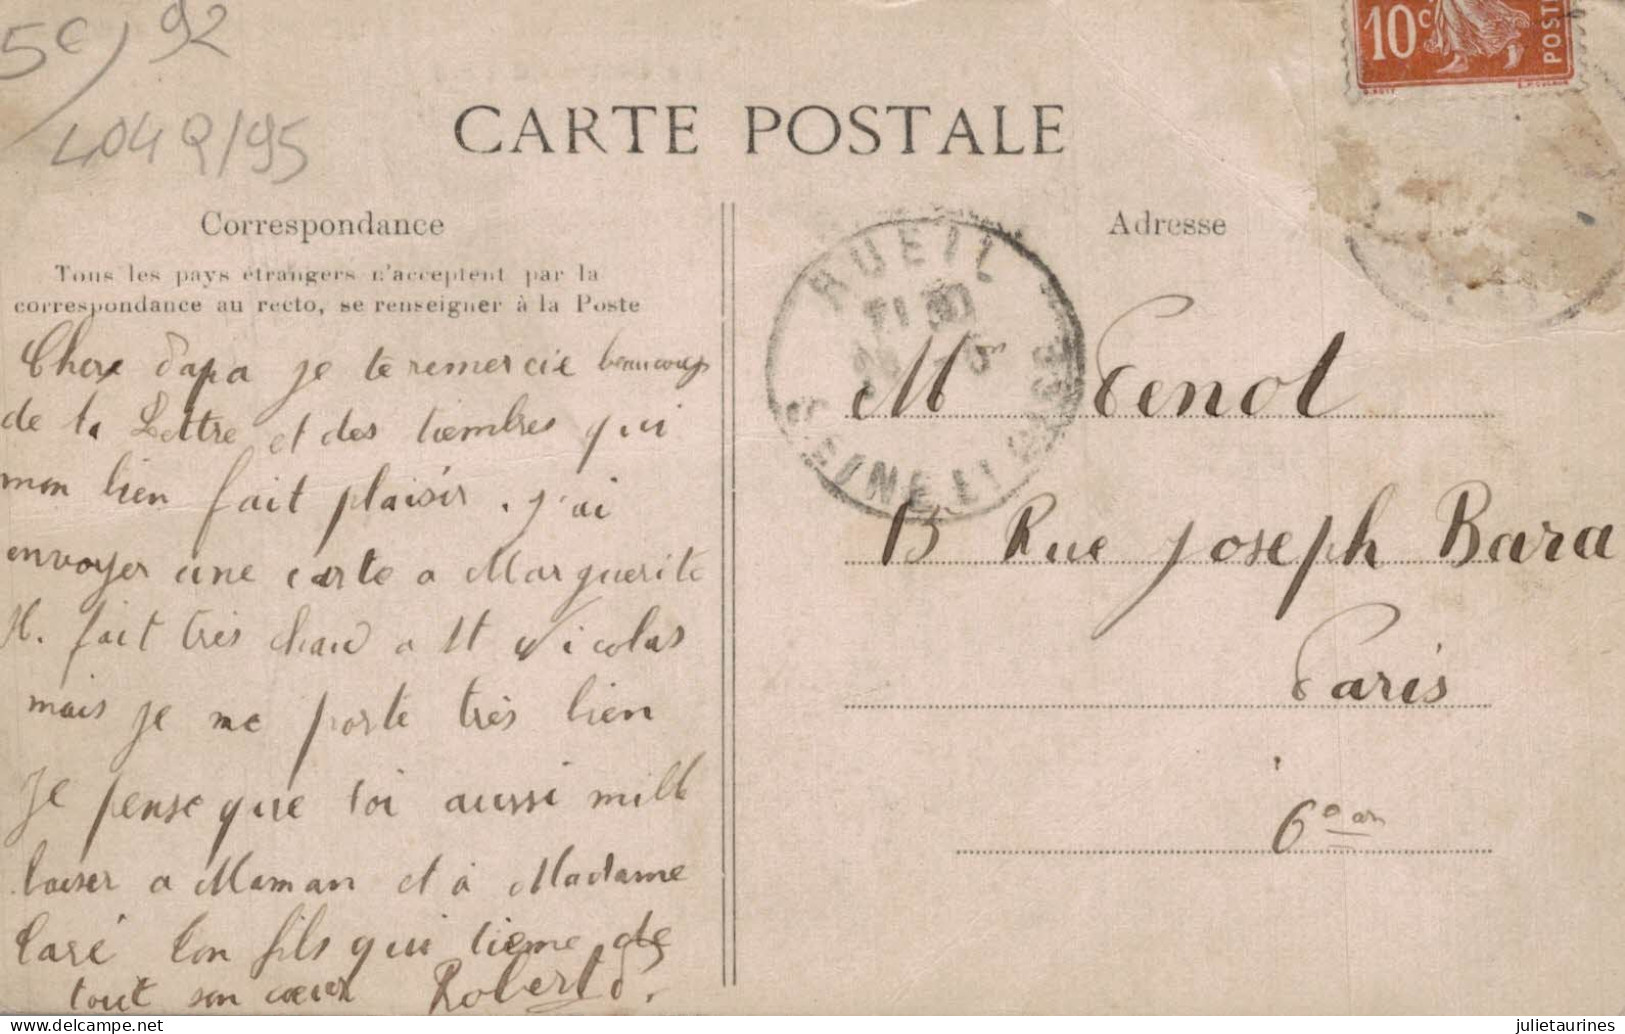 5c/92
404Q/95
10c
POSTES
CARTE POSTALE
Correspondance
Adresse
Tous les pays étrangers n'acceptent par la
correspondance au recto, se renseigner à la Poste
RUEIL
SEINE ET OISE
Chere Papa je te remercie beaucoup
de ta Lettre et des tiembres qui
mon bien fait plaisir. j'ai
envoyer une carte a Marguerite
Il fait très chaud a St Nicolas
mais je me porte très bien
Je pense que toi aussi mille
baiser a Maman et à Madame
Caré ton fils qui tieme de
tout son cœur Robert
Mr Tenot
13 Rue Joseph Bara
Paris
6°
julietaurines
delcampe.net